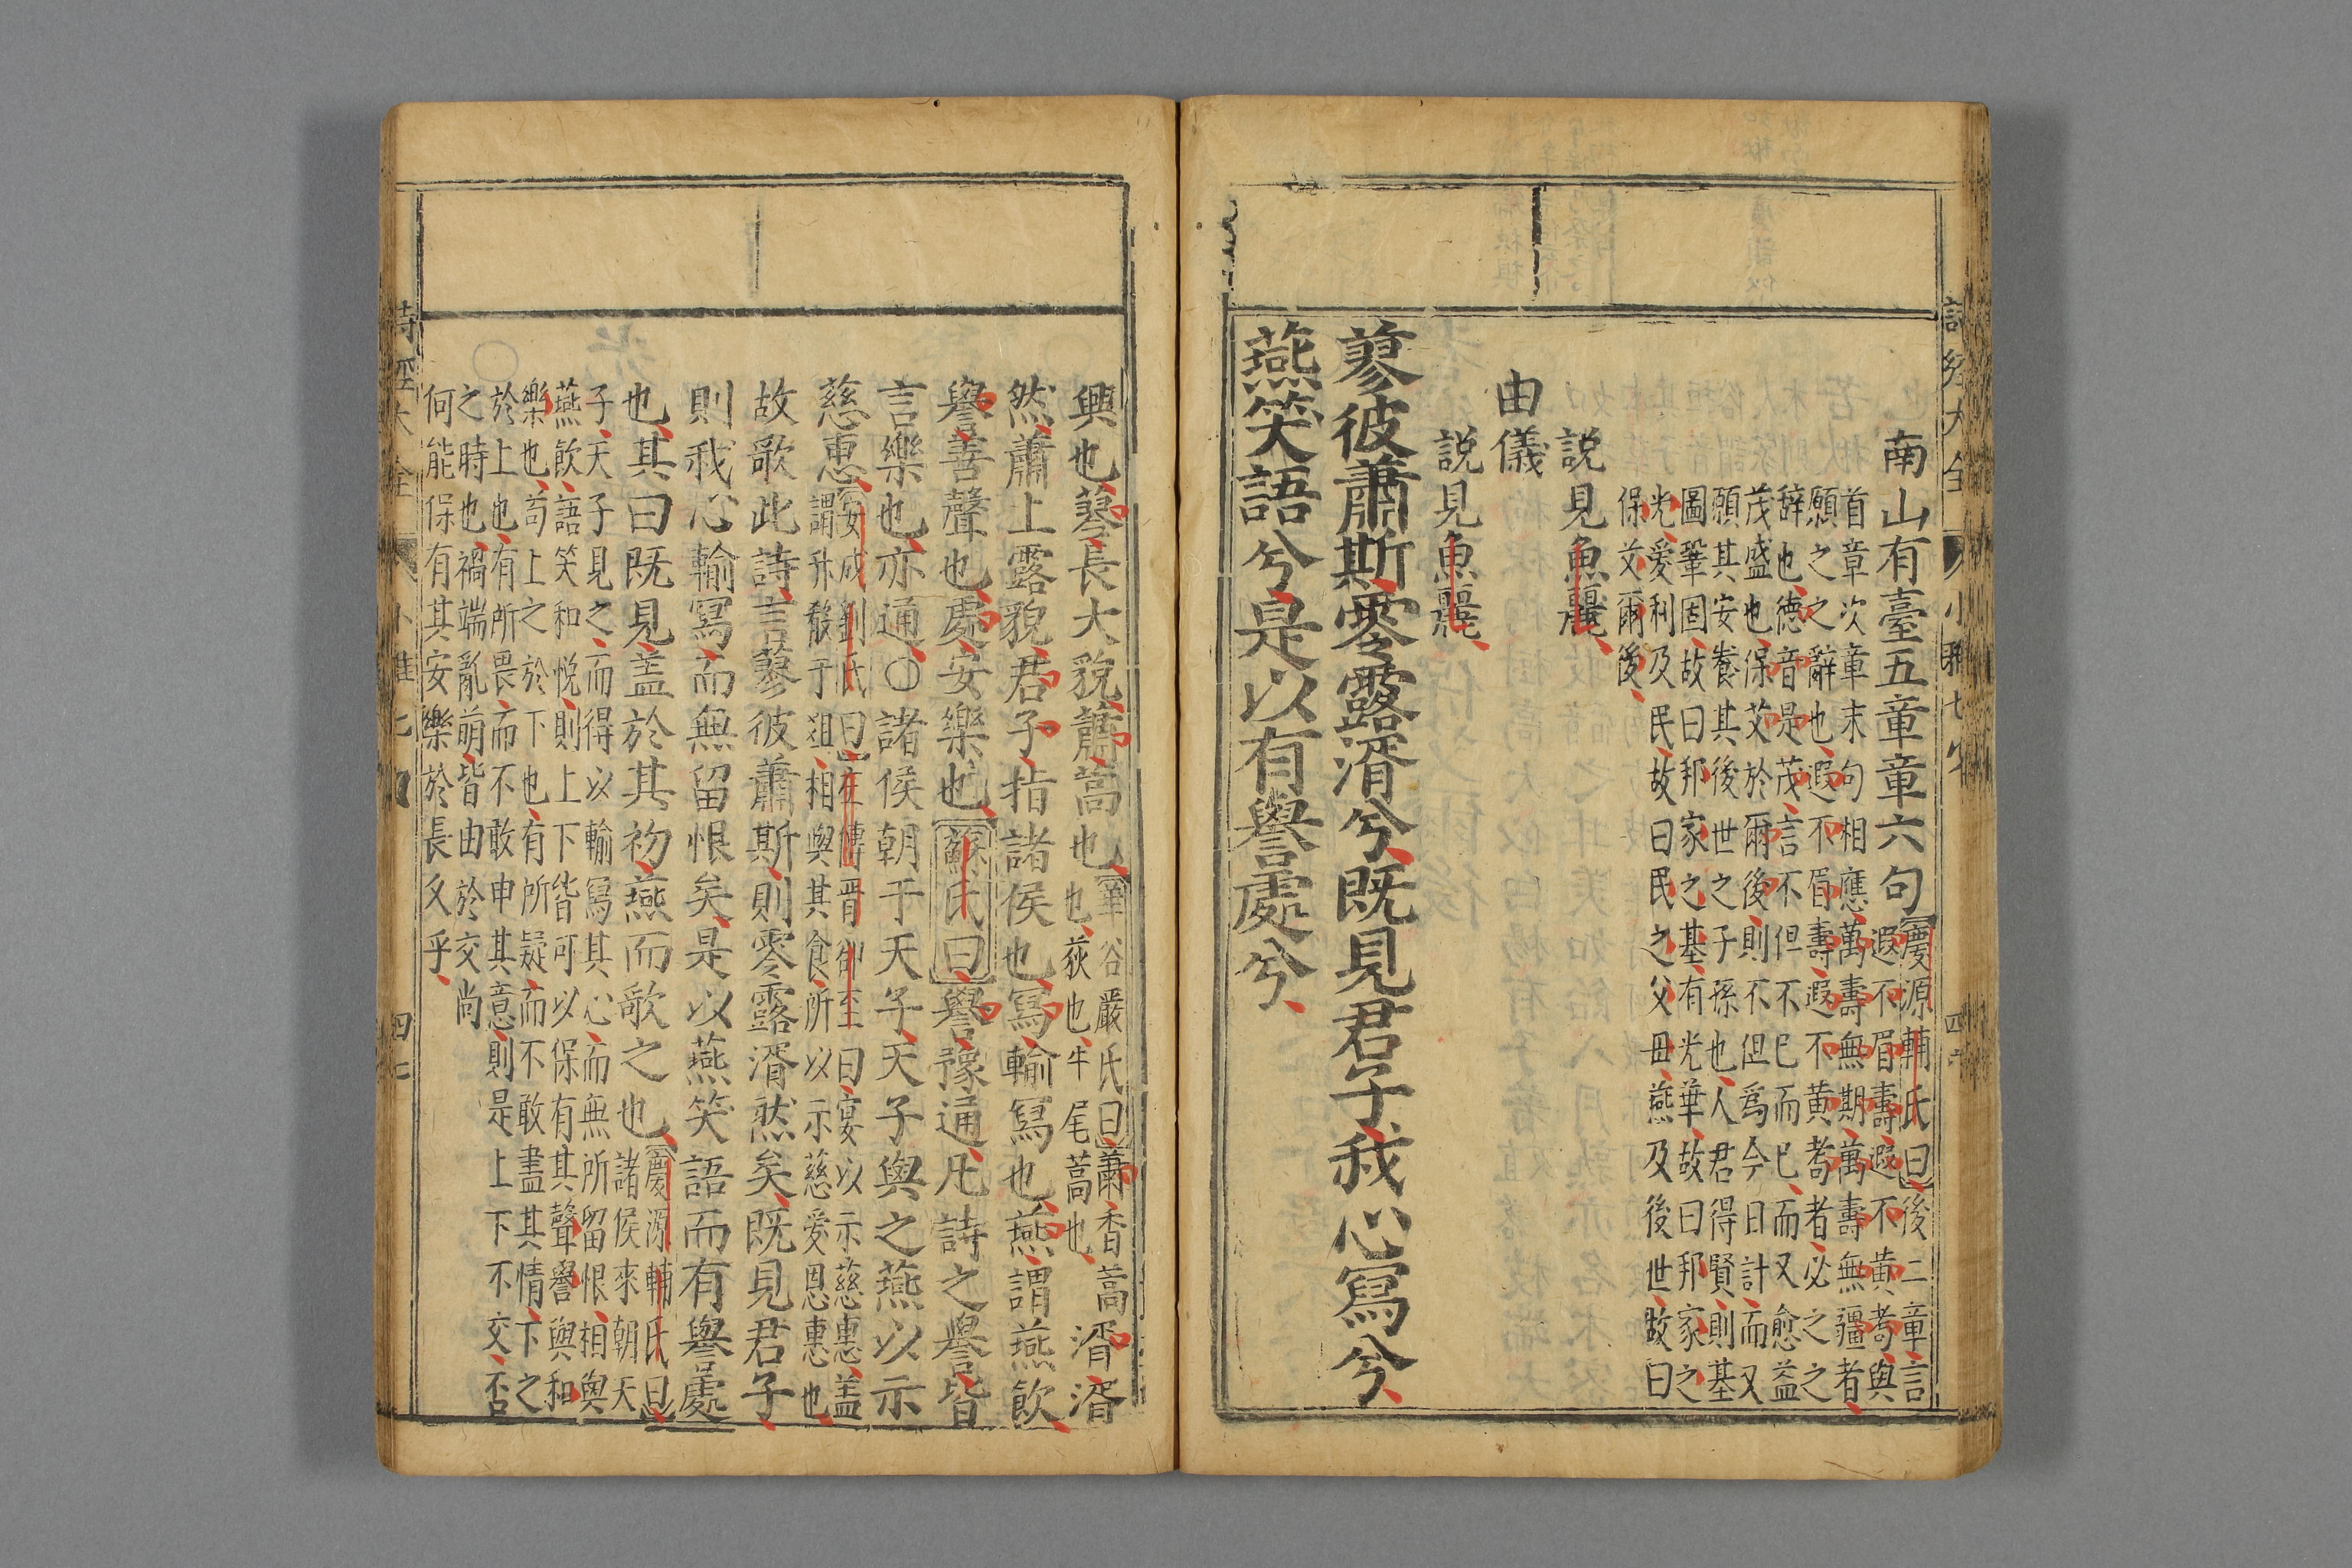 南山有臺五章章六句
慶源輔氏曰後二章言
遐不眉壽遐不黃耇與
首章次章末句相應萬壽無期萬壽無疆者
願之之辭也遐不眉壽遐不黃耇者必之之
辭也德音是茂言不但不已而已而又愈益
茂盛也保艾於爾後則不但爲今日計而又
願其安養其後世之子孫也人君得賢則基
圖鞏固故曰邦家之基有光華故曰邦家之
光愛利及民故曰民之父母燕及後世故曰
保艾爾後
說見魚麗
由儀
說見魚麗
蓼彼蕭斯零露湑兮既見君子我心寫兮
燕笑語兮是以有譽處兮
興也蓼長大貌蕭蒿也
華谷嚴氏曰蕭香蒿
也荻也牛尾蒿也
湑湑
然蕭上露貌君子指諸侯也寫輸寫也燕謂燕飮
譽善聲也處安樂也蘇氏曰譽豫通凡詩之譽皆
言樂也亦通○諸侯朝于天子天子與之燕以示
慈惠
安成劉氏曰左傳晋郤至曰宴以示慈惠盖
謂升殽于俎相與其食所以示慈愛恩惠也
故歌此詩言蓼彼蕭斯則零露湑然矣既見君子
則我心輸寫而無留恨矣是以燕笑語而有譽處
也其曰既見盖於其初燕而歌之也
慶源輔氏曰
諸侯來朝天
子天子見之而得以輸寫其心而無所留恨相與
燕飮語笑和悅則上下皆可以保有其聲譽與和
樂也苟上之於下也有所疑而不敢盡其情下之
於上也有所畏而不敢申其意則是上下不交否
之時也禍端亂萌皆由於交尚
何能保有其安樂於長久乎